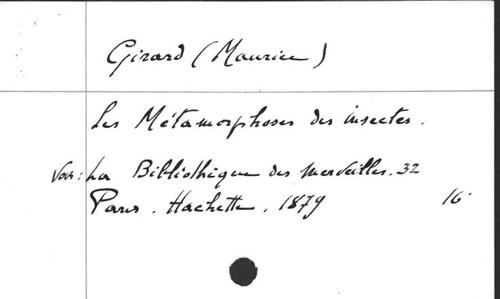 Girard (Maurice)
Les Métamorphoses des insectes.
Voir: La Bibliothèque des merveilles. 32
Paris. Hachette. 1879 16